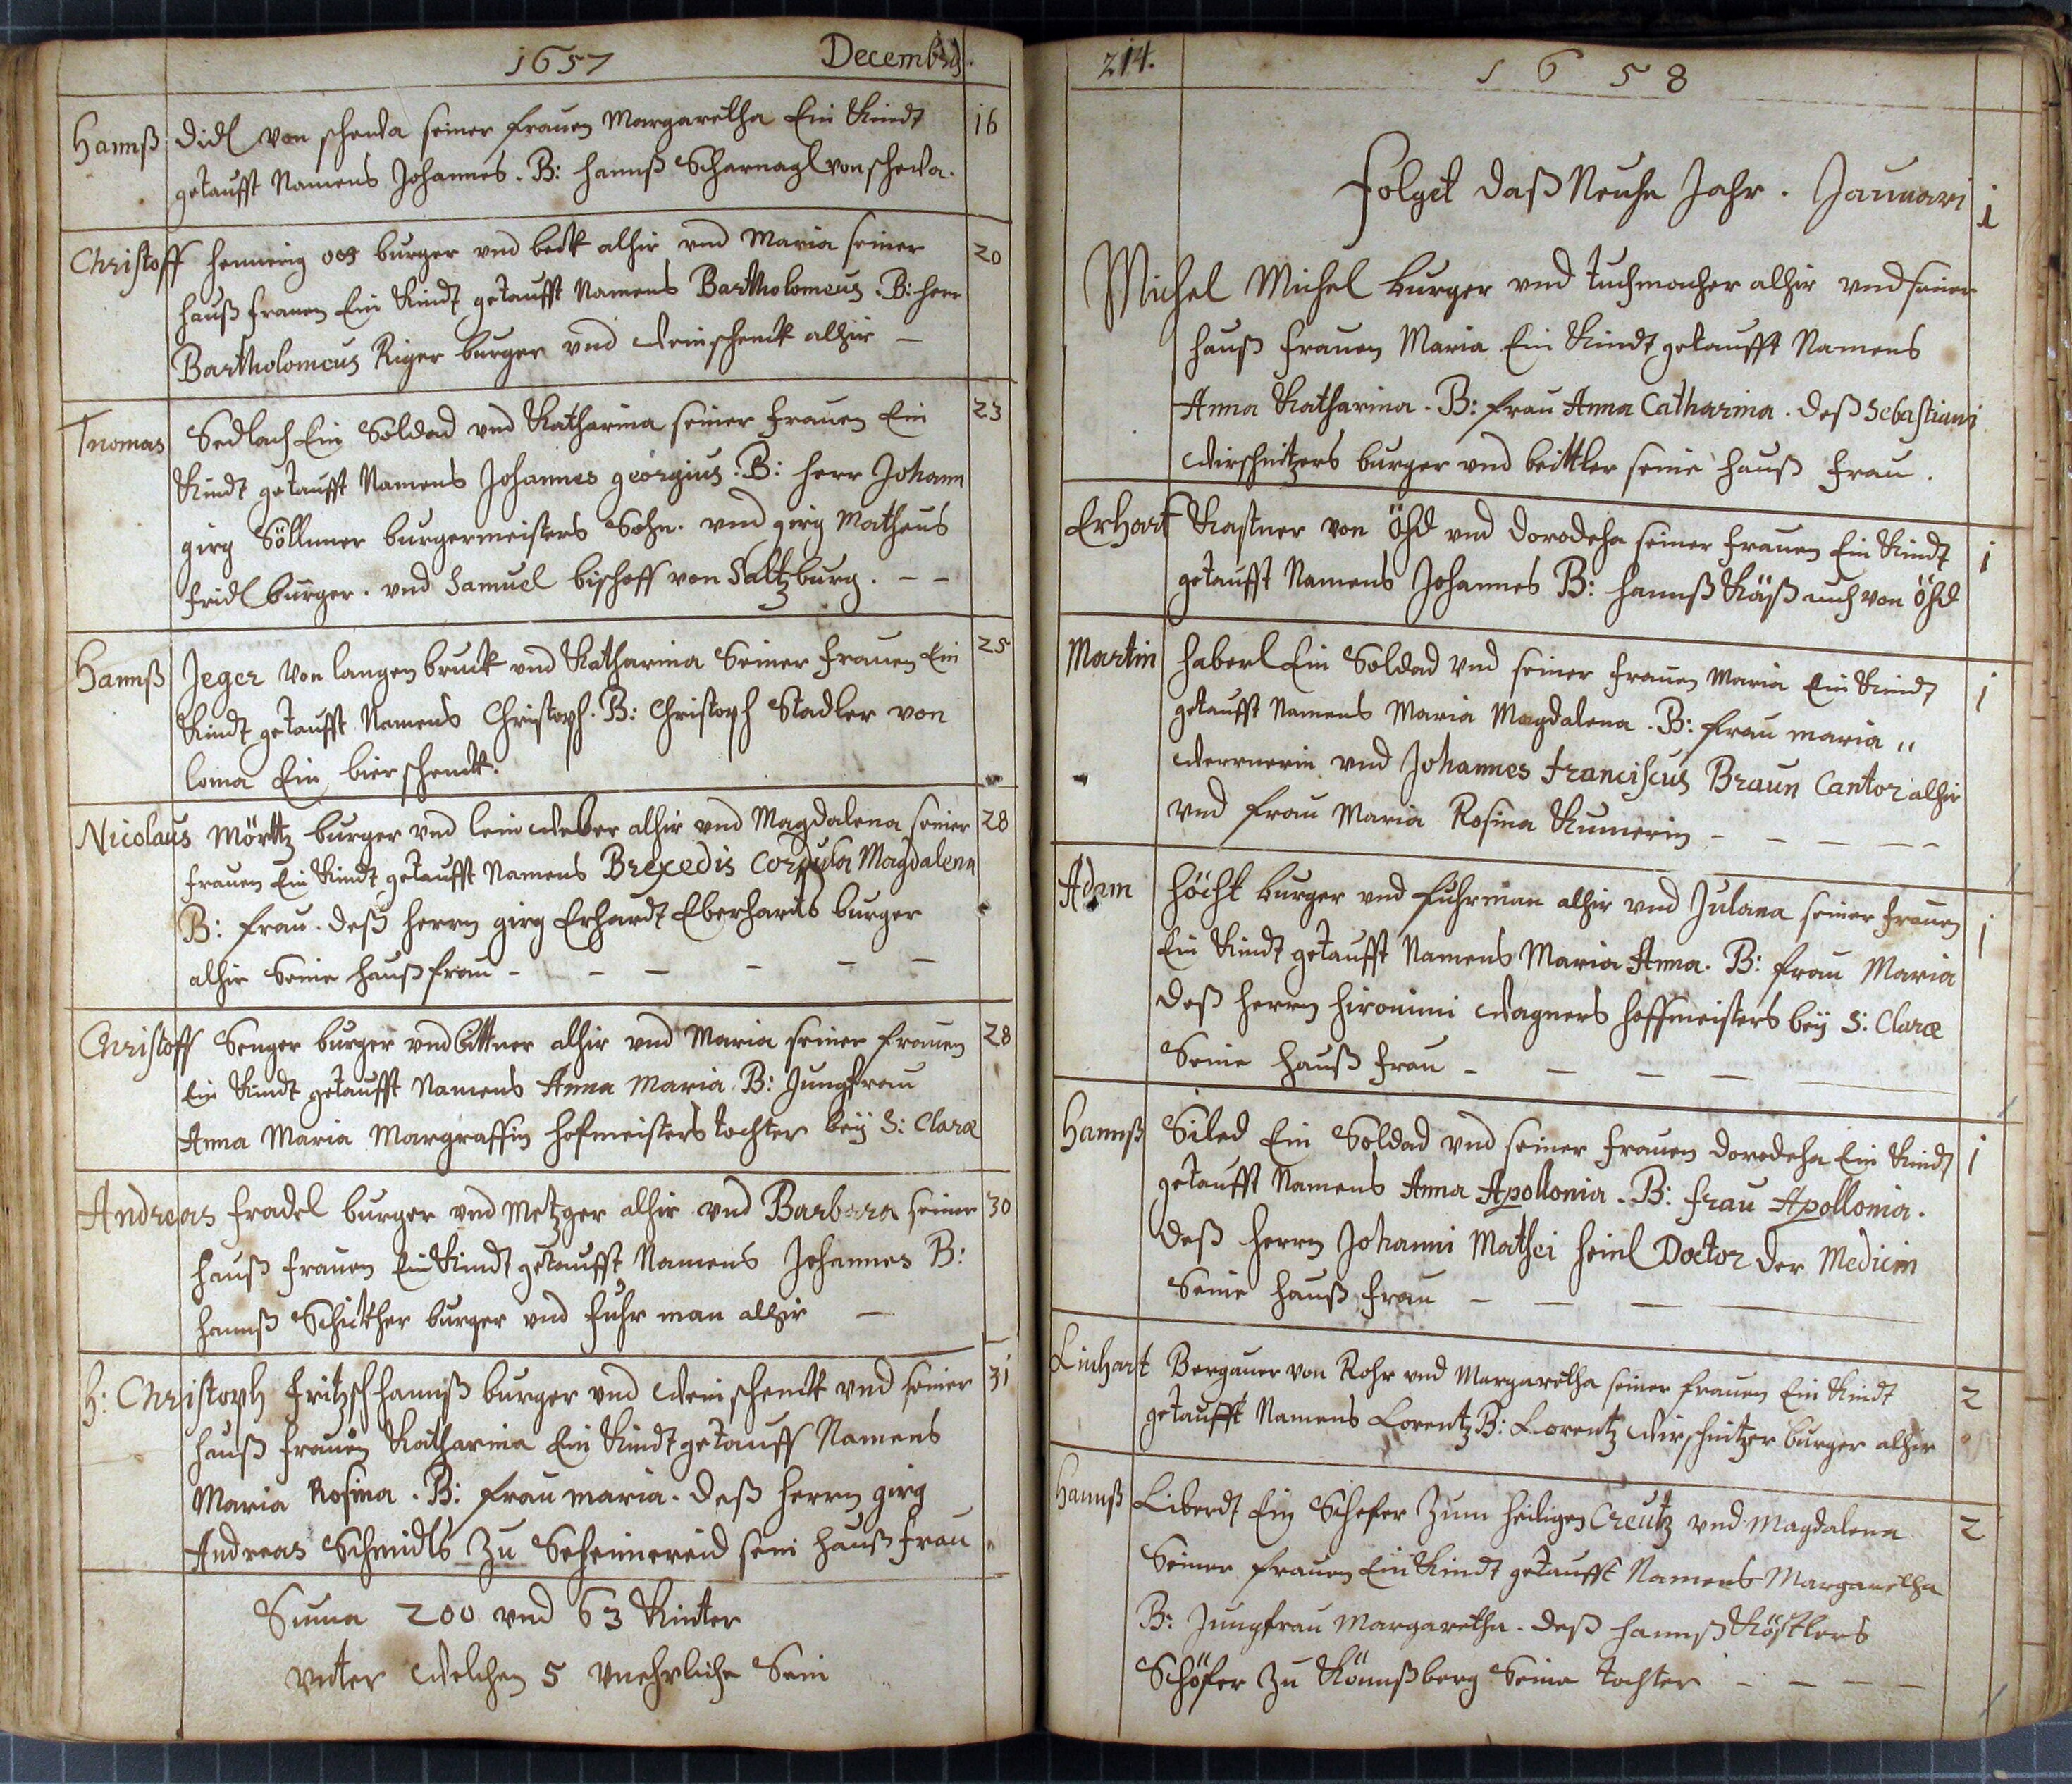 1657 Decembris.
Hannß Didl von scheda seiner frauen Margaretha Ein Kindt 16
getaufft Namens Johannes. B: Hannß Scharnagl von scheda.
Christoff burger vnd beck alhir vnd Maria seiner 20
hauß frauen Ein Kindt getaufft Namens Bartholomeus. B: herr
Bartholomeus Riger burger vnd weinschenck alhir –
Thomas Sedlach Ein Soldad vnd Katharina seiner frauen Ein 23
Kindt getaufft Namens Johannes georgius. B: Herr Johann
girg Söllnner burgermeisters Sohn. vnd girg Matheus
fridl burger. vnd Samuel bischoff von Saltzburg. – –
Hannß Jeger von langen bruck vnd Katharina Seiner frauen Ein 25
Kindt getaufft Namens Christoph. B: Christoph Stadler von
loma Ein bierschenck.
Nicolaus Mörttz burger vnd lein weber alhir vnd Magdalena seiner 28
frauen Ein Kindt getaufft Namens Brexedis Cordula Magdalena
B: frau. deß herrn girg Erhardt Eberhardts burger
alhir Seine haußfrau – – – – – –
Christoff Senger burger vnd bittner alhir vnd Maria seiner frauen 28
Ein Kindt getaufft Namens Anna Maria. B: Jungfrau
Anna Maria Margraffin hofmeisters tochter beÿ S: Claræ
Andreas fradel burger vnd Metzger alhir vnd Barbara seiner 30
hauß frauen Ein Kindt getaufft Namens Johannes B:
hannß Schückher burger vnd fuhr man alhir –
H: Christoph fritzsch hannß burger vnd wein schenck vnd seiner 31
hauß frauen Katharina Ein Kindt getauff Namens
Maria Rosina. B: frau maria. deß herrn girg
Andreas Schmidls zu sein hauß frau
Suma 200 vnd 63 Kinter
vnter welchen 5 vnehrliche Sein
214. 1658
Folget daß Neuhe Jahr. Januari 1
Michel Michel burger vnd tuchmacher alhir vnd seiner
hauß frauen Maria Ein Kindt getaufft Namens
Anna Katharina. B: frau Anna Catharina. deß Sebastiani
wirschnitzers burger vnd beittler seine hauß frau.
Erhart Kastner von Öhd vnd dorodeha seiner frauen Ein Kindt 1
getaufft Namens Johannes B: hannß Käß auch von Öhd
Martin haberl Ein Soldad vnd seiner frauen Maria Ein Kindt 1
getaufft Namens Maria Magdalena. B: frau maria "
wernerin vnd Johannes Franciscus Braun Cantor alhir
vnd frau Maria Rosina Kumerin – – – – –
Adam höcht burger vnd fuhrman alhir vnd Juliana seiner frauen 1
Ein Kindt getaufft Namens Maria Anna. B: frau Maria
deß herrn hironimi wagners hoffmeisters beÿ S: Claræ
Seine hauß frau – – – –
Hannß Siled Ein Soldad vnd seiner frauen dorodeha Ein Kindt 1
getaufft Namens Anna Apollonia. B: frau Apollonia.
deß herrn Johanni Mathei heinl Doctor der Medicin
Seine hauß frau – – –
Linhart Bergauer von Rohr vnd Margaretha seiner frauen Ein Kindt 2
getaufft Namens Lorentz B: Lorentz wirschnitzer burger alhir
Hannß Liberdt Ein Schefer zum heiligen Creutz vnd Magdalena 2
Seiner frauen Ein Kindt getaufft Namens Margaretha
B: Jungfrau Margaretha. deß hannß Köstlers
Schöfer zu Könnßberg Seine tochter – – – –